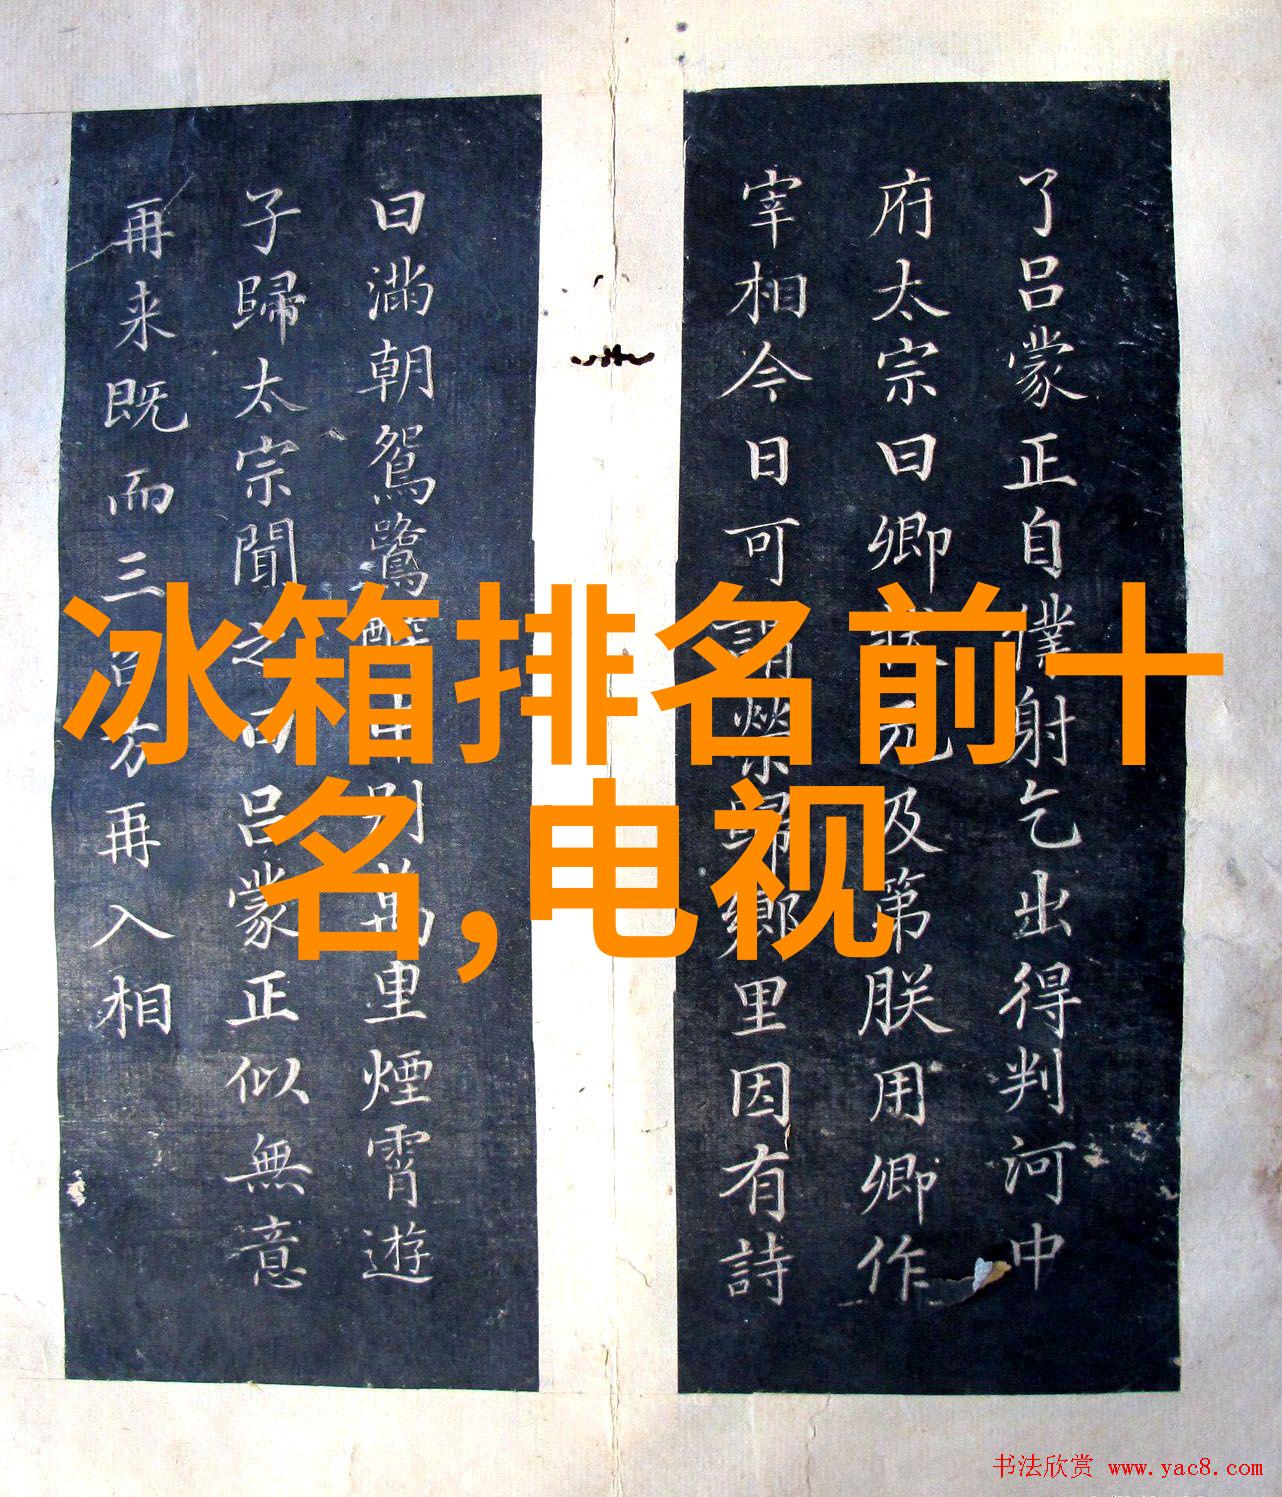 冰箱排名前十
名,电视
了吕蒙正自僕射乞出得判河中
府太宗曰卿元及第朕用卿作
宰相今日可謂榮歸鄉里因有詩
曰滿朝鴛鷺醉中別萬里煙霄遊
子歸太宗聞之曰吕蒙正似無意
再来既而三召方再入相
书法欣赏 www.yac8.com